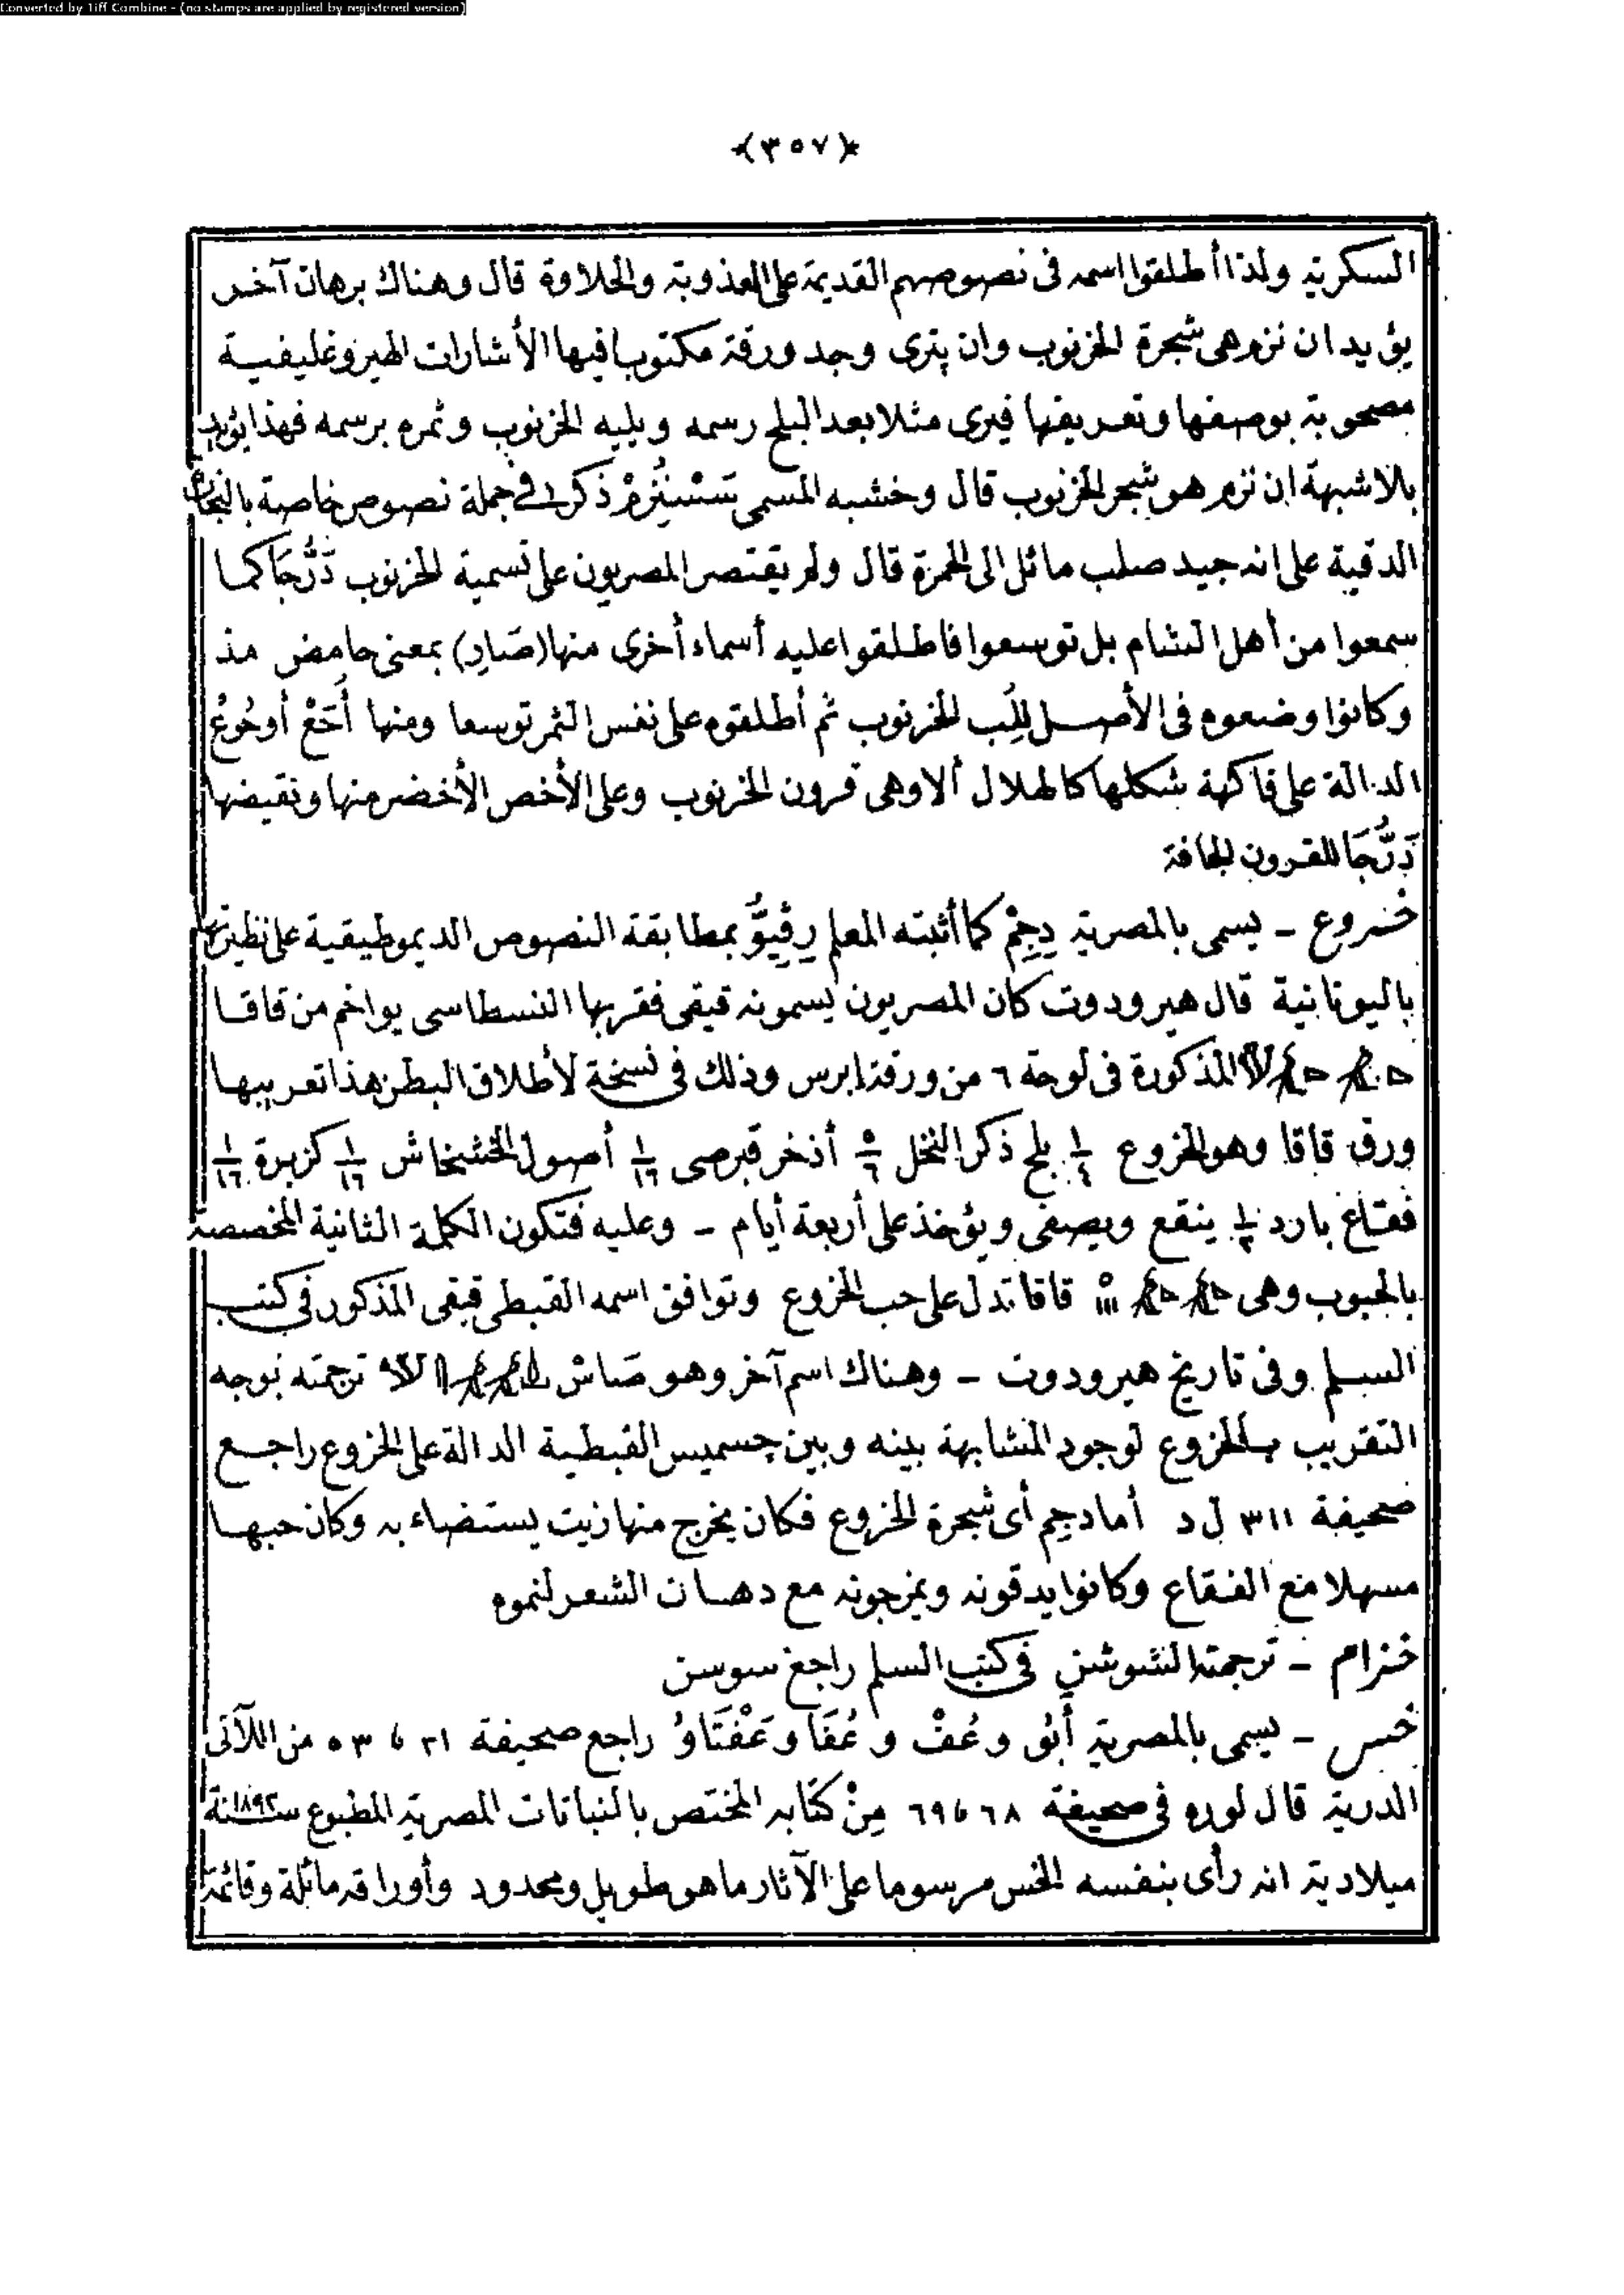 Converted by Tiff Combine - (no stamps are applied by registered version)
﴿٣٥٧﴾
السكرية ولذا أطلقوا اسمه فى نصوصهم القديمة على العذوبة والحلاوة قال وهناك برهان آخر
يؤيد ان نزم هى شجرة الخرنوب وان پتری وجد ورقة مكتوبا فيها الأشارات الهيروغليفية
مصحوبة بوصفها وتعريفها فيرى مثلا بعد البلح رسمه ويليه الخرنوب وثمره برسمه فهذا يؤيد
بالاشبهة ان نزم هو شجر الخرنوب قال وخشبه المسمى ذكر فى جملة نصوص خاصة بالنجارة
الدقية على انه جيد صلب مائل الى الحمرة قال ولم يقتصر المصريون على تسمية الخرنوب دَرُّجَا كما
سمعوا من أهل الشام بل توسعوا فاطلقوا عليه أسماء أخرى منها (صَارِ) بمعنى حامض مذ
وكانوا وضعوه فى الأصل للُب الخرنوب ثم أطلقوه على نفس الثمر توسعا ومنها أَخَعْ أوخُوعْ
الدالة على فاكهة شكلها كالهلال ألا وهى قرون الخرنوب وعلى الأخص الأخضر منها ونقيضها
دَرُّجَا للقرون الجافة
خروع – يسمى بالمصرية دِجِمْ كما أثبته المعلم رِڤِيُّو بمطابقة النصوص الديموطيقية على نظيرتها
باليونانية قال هيرودوت كان المصريون يسمونه قيقى فقربها النسطاسى يواخم من قاقا
المذكورة فى لوحة ٦ من ورقة إبرس وذلك فى نسخة لأطلاق البطن هذا تعريبها
ورق قاقا وهو الخروع ١/٤ بلح ذكر النخل ٥/٦ أذخر قبرصى ١/١٦ أصول الخشخاش ١/١٦ كزبرة ١/١٦
فقاع بارد ١/٢ ينقع ويصفى ويؤخذ على أربعة أيام – وعليه فتكون الكلمة الثانية المخصصة
بالحبوب وهى قاقا تدل على حب الخروع وتوافق اسمه القبطى قيقى المذكور فى كتب
السلم وفى تاريخ هيرودوت – وهناك اسم آخر وهو صَاسْ ترجمته بوجه
التقريب بالخروع لوجود المشابهة بينه وبين چسميس القبطية الدالة على الخروع راجع
صحيفة ٣١١ ل د أما دجم أى شجرة الخروع فكان يخرج منها زيت يستضاء به وكان حبها
مسهلا مع الفقاع وكانوا يدقونه ويمزجونه مع دهان الشعر لنموه
خزام – ترجمته الشوشن فى كتب السلم راجع سوسن
خس – يسمى بالمصرية أَبُو وعُفْ و عُفَا وعَفْتَاوُ راجع صحيفة ٢١ ٥٣ من اللآلى
الدرية قال لوره فى صحيفة ٦٨ ٦٩ مِنْ كتابه المختص بالنباتات المصرية المطبوع سنة ١٨٩٢
ميلادية انه رأى بنفسه الخس مرسوما على الآثار ما هو طويل ومحدود وأوراقه مائلة وقائمة